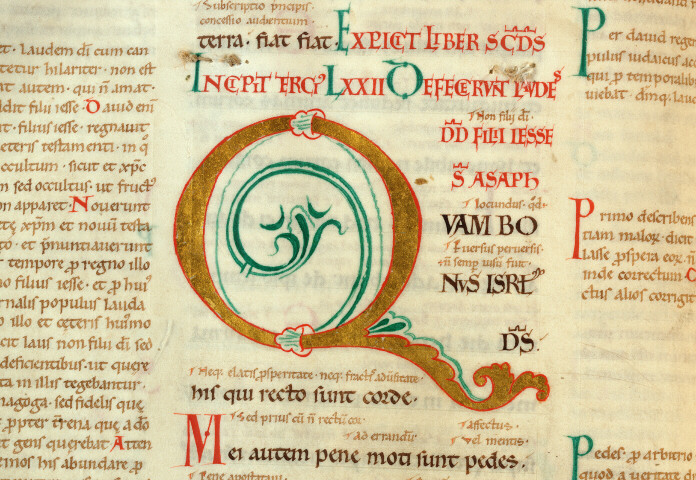 et · laudem dī cum can
tetur hilariter · non est
at autem · qui n̄ amat ·
filii iesse · Dauid enī
t · filius iesse · regnauit
eteris testamenti · in q̊
occultum · sicut et xp̄c
m sed occultus · ut fruct9
on apparet · Nouerunt
xp̄m et nouū testa
et p̄nuntiauerunt
tempore ꝓ regno illo
no filius iesse · et ꝑ hui9
rnalis populus lauda
illo et cęteris humo
cit laus non filii dī · sed
deficientibus · ut quere
ta in illis tegebantur ·
nagoga · sed fidelis quę
ꝓpter t̄rena quę a dō
t gens querebat · Atten
emos his abundare ꝑ
Subscriptio principis
concessio audientium
terra · fiat fiat · EXPLICIT LIBER SC̄DS
INCIPIT TERCI9 LXXII DEFECERVNT LAVDES
Non filii dī ·
DD FILII IESSE
S̄ ASAPH
Iocundus · qd·
QVAM BO
Peruersus peruersis ·
n̄ semp uisu fuit ·
NVS ISRL
DS̄
Neq; elatis ꝓsperitate · neq; fractis aduersitate ·
his qui recto sunt corde ·
Sed prius cū n̄ rectū cor ·
ad errandū
affectus ·
Vel mentis ·
Mei autem pene moti sunt pedes ·
Per dauid rege
pulus iudaicus
qui ꝑ temporalib
uiebat · dn̄iq; lau
Primo describens
tiam malor · dicit
lasse ꝓspera eor ·
inde correctum
ctus alios corrigit
Pedes · ꝓ arbitrio
quod a ueritate